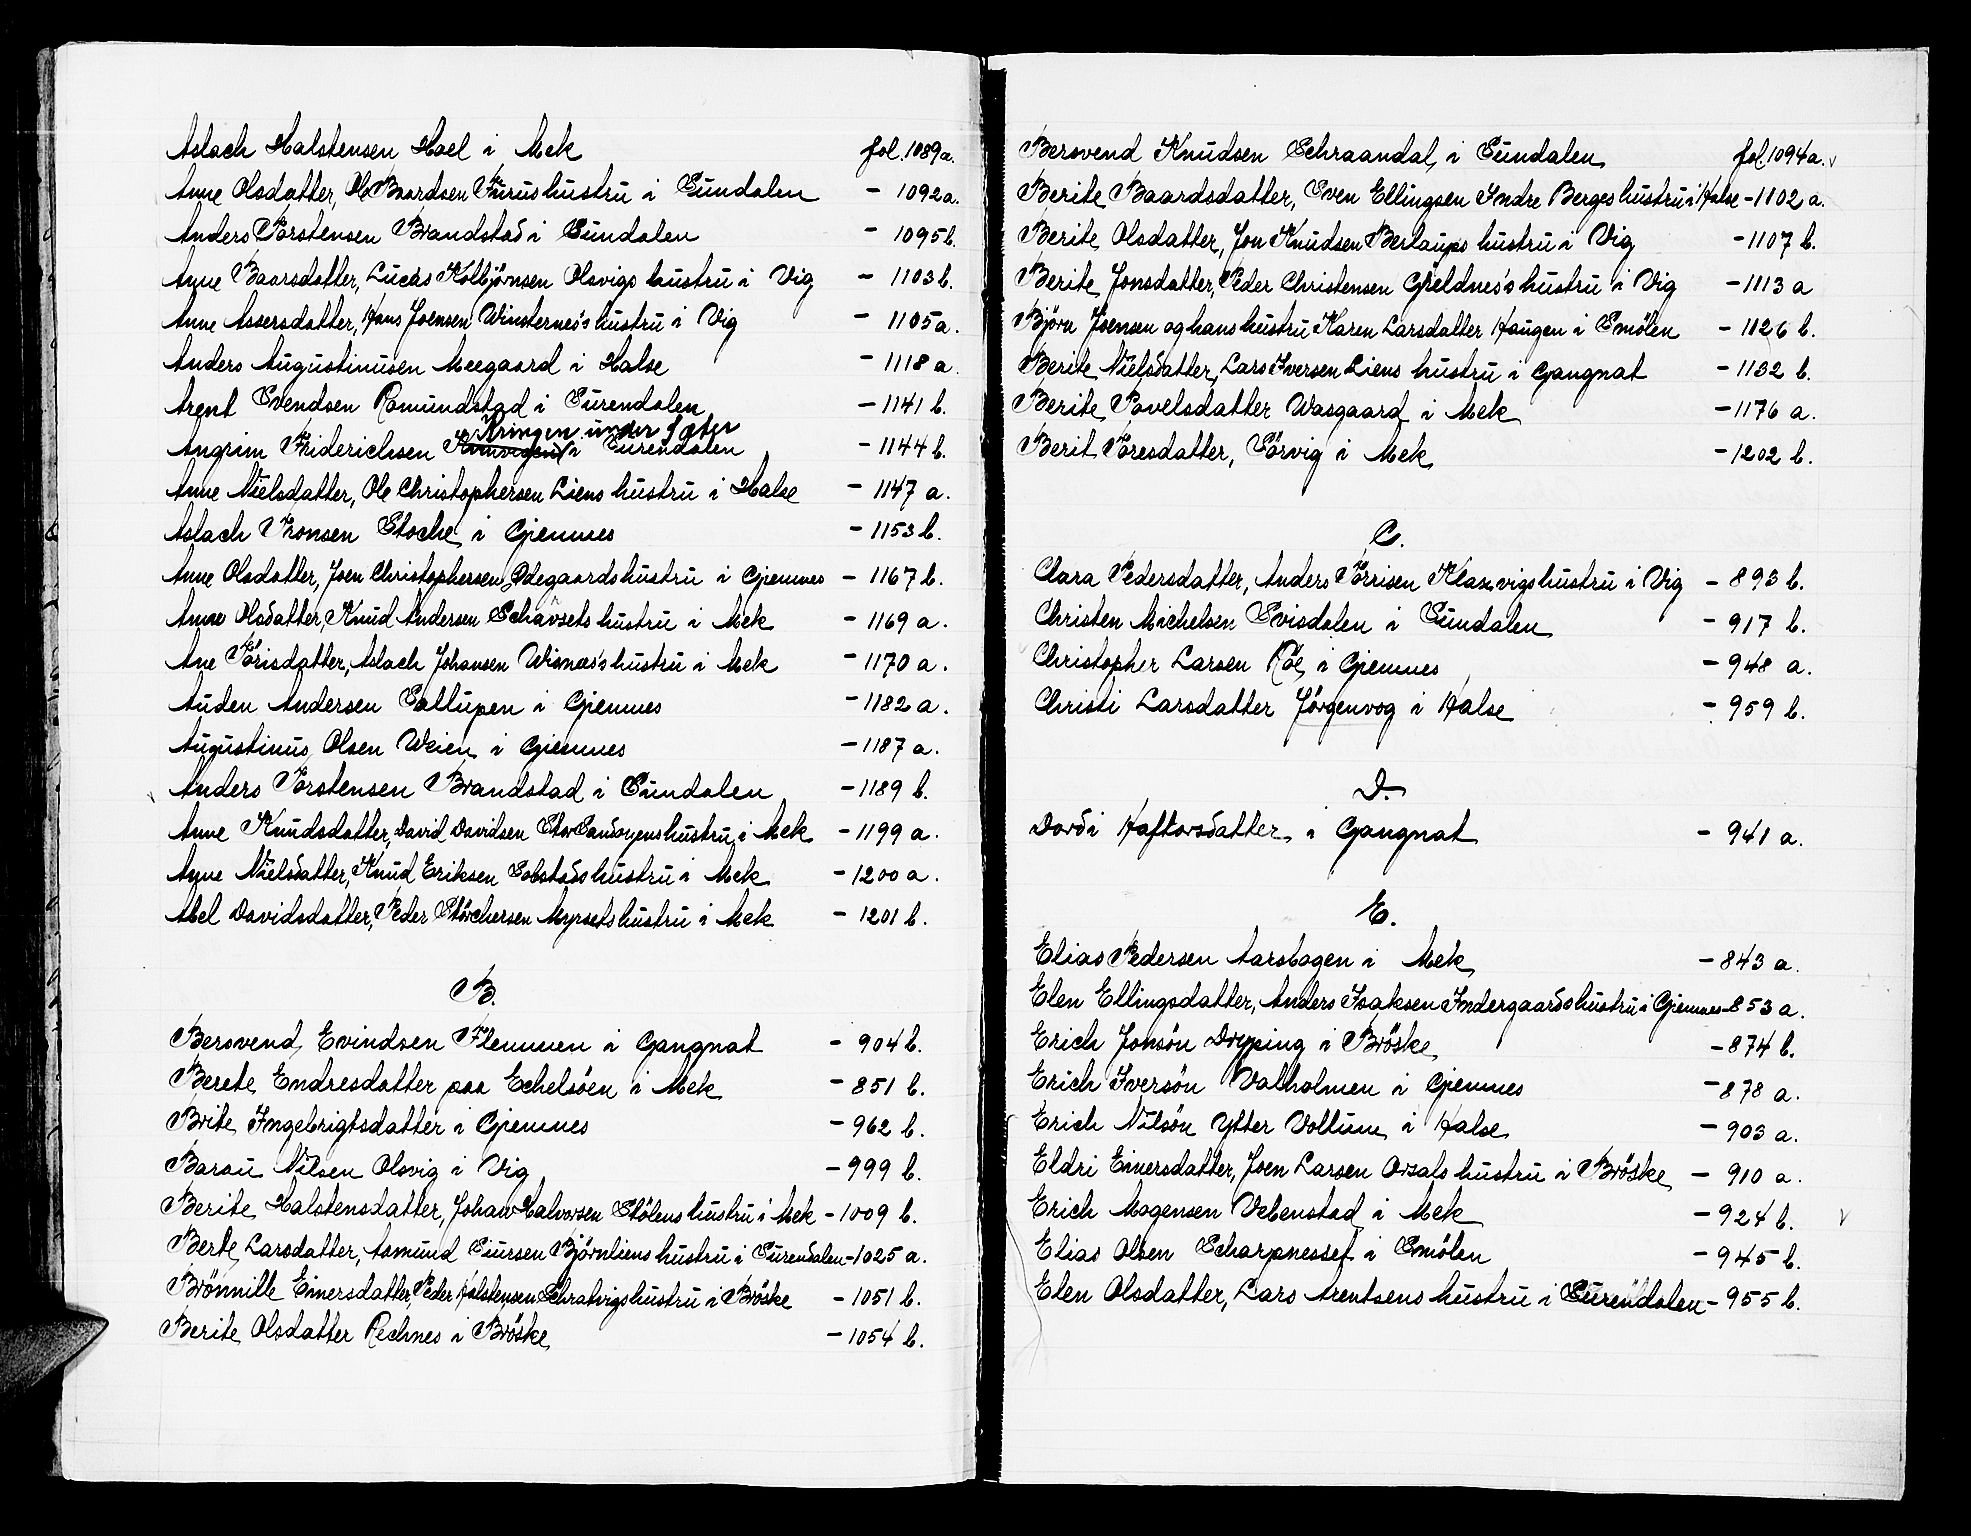 Aslach Halstensen Hoel i Mek fol. 1089 a.
Anne Olsdatter, Ole Baardsen Furus hustru i Sundalen - 1092 a.
Anders Torstensen Brandstad i Sundalen - 1095 b.
Anne Baarsdatter, Lucas Kolbjörnsen Olsvigs hustru i Vig - 1103 b.
Anne Assersdatter, Hans Joensen Winsternes's hustru i Vig - 1105 a.
Anders Augustinusen Meegaard i Halse - 1118 a.
Arent Svendsen Romundstad i Surendalen - 1141 b.
Kringen under sæter
Angrim Friderichsen i Surendalen - 1144 b.
Anne Nielsdatter, Ole Christophersen Liens hustru i Halse - 1147 a.
Aslach Tronsen Stoche i Gjemnes - 1153 b.
Anne Olsdatter, Joen Christophersen Ødegaards hustru i Gjemnes - 1167 b.
Anne Olsdatter, Knud Andersen Schavsets hustru i Mek - 1169 a.
Ane Torisdatter, Aslach Johansen Wisnæs's hustru i Mek - 1170 a.
Auden Andersen Sollupen i Gjemnes - 1182 a.
Augustinus Olsen Weien i Gjemnes - 1187 a.
Anders Torstensen Brandstad i Sundalen - 1189 b.
Anne Knudsdatter, David Davidsen Stor Sandøyens hustru i Mek - 1199 a.
Anne Nielsdatter, Knud Eriksen Solstads hustru i Mek - 1200 a.
Abel Davidsdatter, Peder Störchersen Myrsets hustru i Mek - 1201 b.
B.
Bersvend Evindsen Flemmen i Gangnat - 904 b.
Berete Endresdatter paa Echelsöen i Mek - 851 b.
Brite Ingebrigtsdatter i Gjemnes - 962 b.
Barau Nilsen Olsvig i Vig - 999 b.
Berite Halstensdatter, Johan Halvorsen Stölens hustru i Mek - 1009 b.
Berte Larsdatter, Asmund Siursen Björnliens hustru i Surendalen - 1025 a.
Brönnille Einersdatter, Peder Halstensen Schratvigs hustru i Bröske - 1051 b.
Berite Olsdatter Rechnes i Bröske - 1054 b.
Bersvend Knudsen Schraandal i Sundalen fol. 1094 a.
Berite Baardsdatter, Sven Ellingsen Indre Berges hustru i Halse - 1102 a.
Berite Olsdatter, Jon Knudsen Berlaups hustru i Vig - 1107 b.
Berite Jonsdatter, Peder Christensen Gjeldnes's hustru i Vig - 1113 a
Björn Joensen og hans hustru Karen Larsdatter Haugen i Smölen - 1126 b.
Berite Nielsdatter, Lars Iversen Liens hustru i Gangnat - 1132 b.
Berite Povelsdatter Wasgaard i Mek - 1176 a.
Berit Toresdatter, Sörvig i Mek - 1202 b.
C.
Clara Pedersdatter, Anders Torrisen Klaxvigs hustru i Vig - 893 b.
Christen Michelsen Svisdalen i Sundalen - 917 b.
Christopher Larsen Röe i Gjemnes - 948 a.
Christi Larsdatter Jörgenvog i Halse - 959 b.
D.
Dordi Haftorsdatter i Gangnat - 941 a.
E.
Elias Pedersen Aarsbogen i Mek - 843 a.
Elen Ellingsdatter, Anders Isaksen Indergaards hustru i Gjemnes - 853 a.
Erich Jonsön Dryping i Bröske - 874 b.
Erich Iversön Valholmen i Gjemnes - 878 a.
Erich Nilsön Ytter Vollum i Halse - 903 a.
Eldri Einersdatter, Joen Larsen Orsals hustru i Bröske - 910 a.
Erich Mogensen Vebenstad i Mek - 924 b.
Elias Olsen Scharpnesset i Smölen - 945 b.
Elen Olsdatter, Lars Arentsens hustru i Surendalen - 955 b.